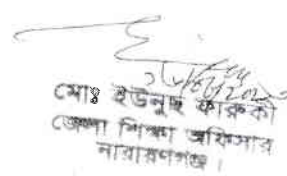 মোঃ ইউনুছ ফারুকী
জেলা শিক্ষা অফিসার
নারায়ণগঞ্জ।